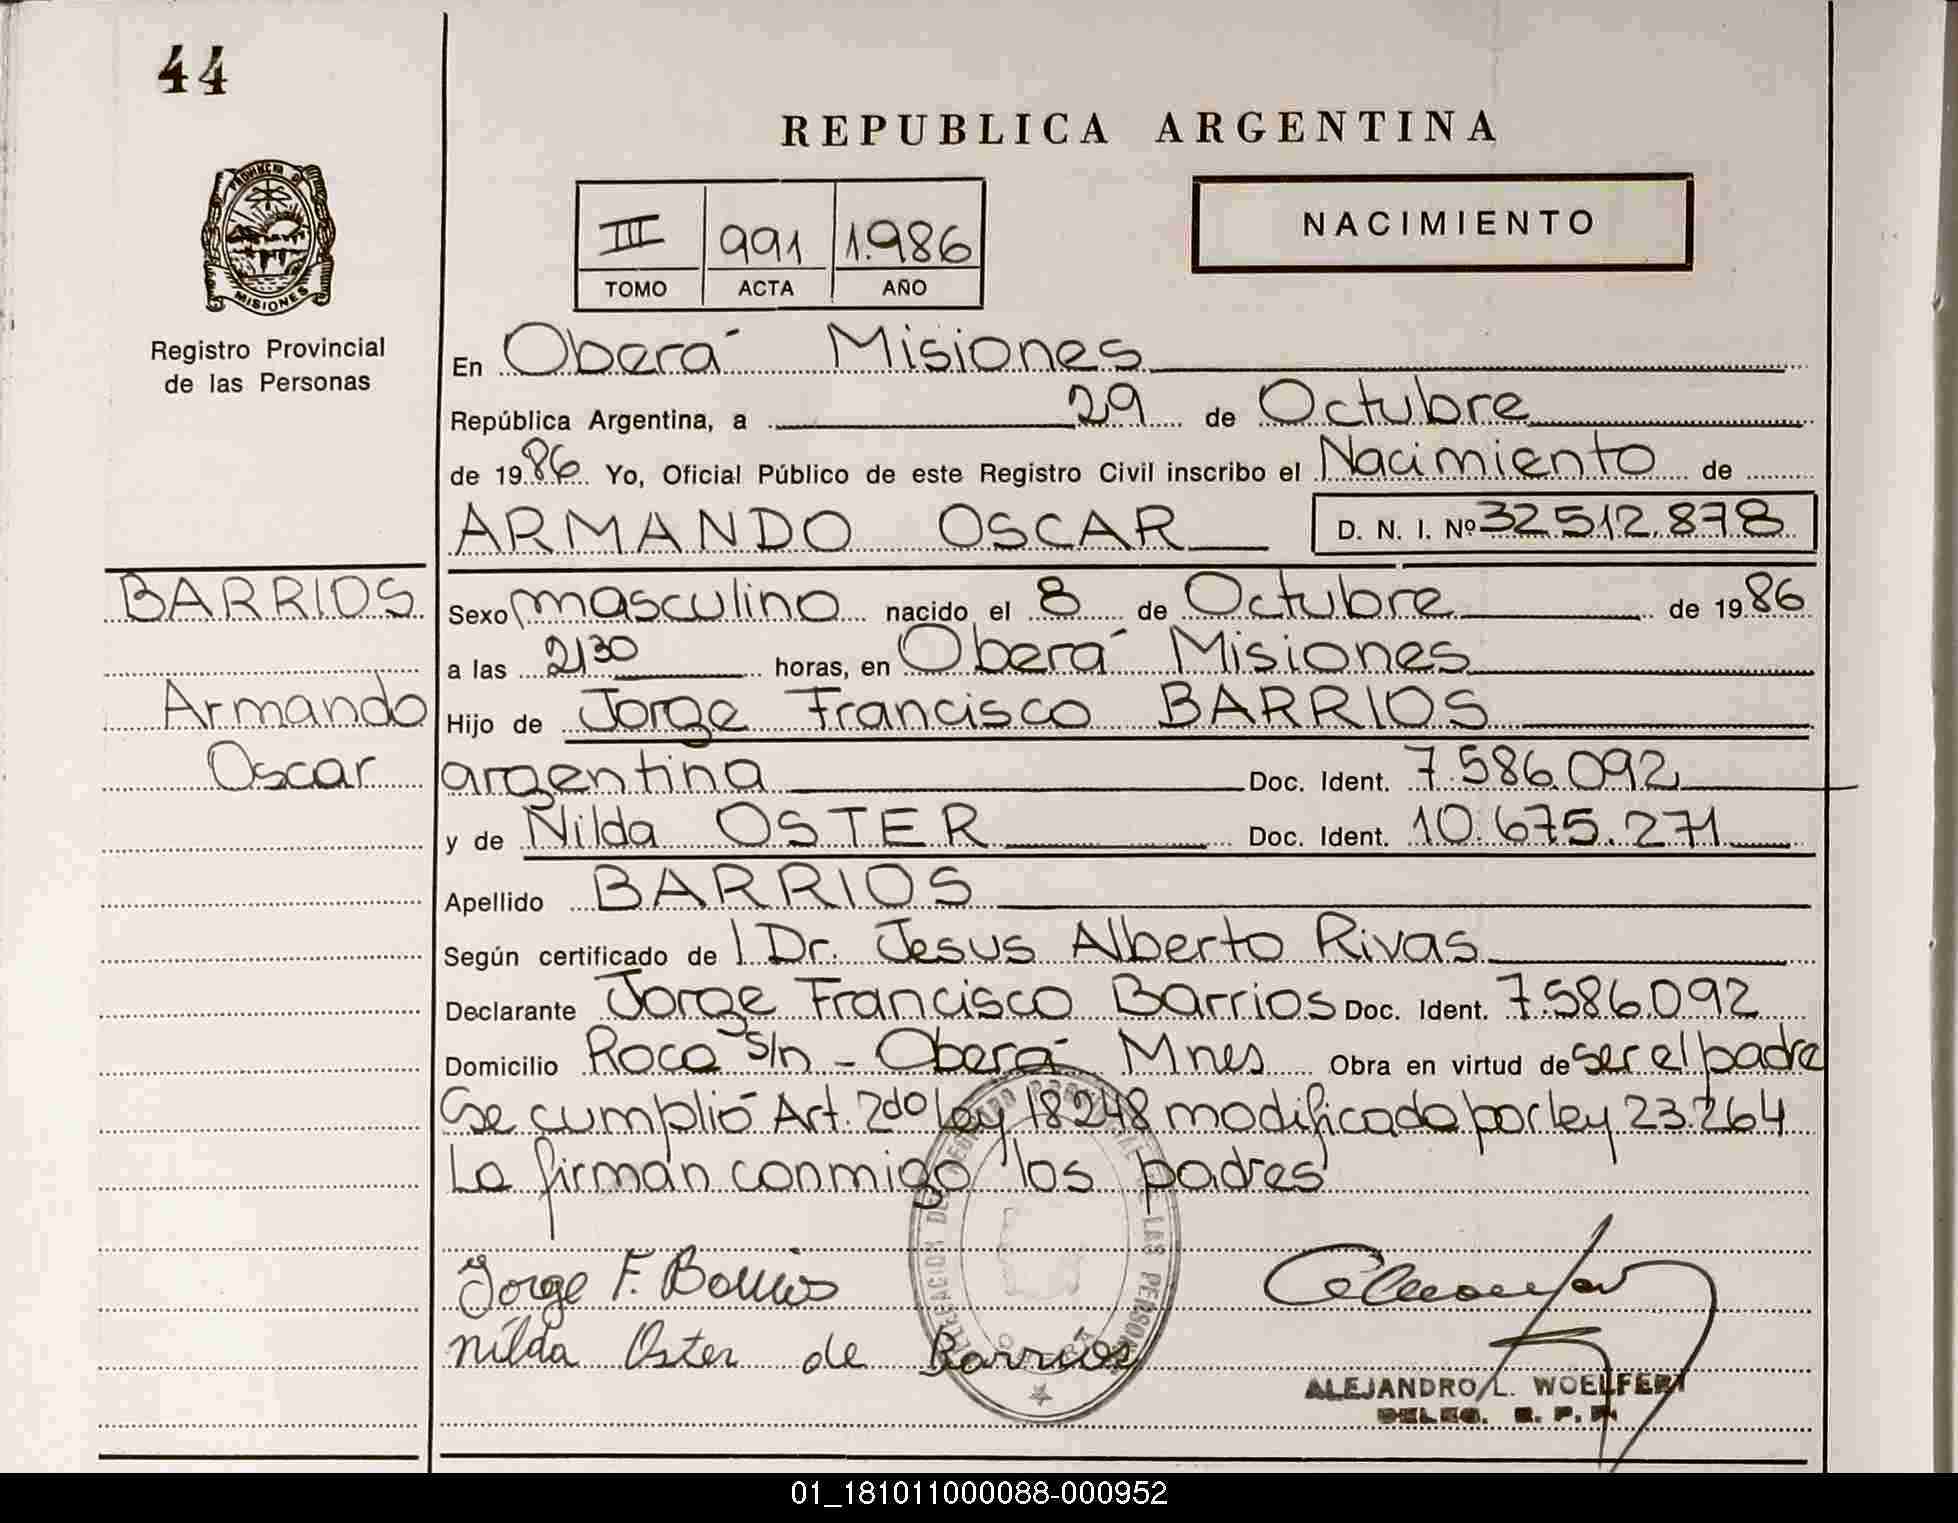 44
REPUBLICA ARGENTINA
PROVINCIA D
MISIONES
Registro Provincial
de las Personas
III 991 1.986
TOMO ACTA AÑO
NACIMIENTO
En Oberá Misiones
República Argentina, a 29 de Octubre
de 1986 Yo, Oficial Público de este Registro Civil inscribo el Nacimiento de
ARMANDO OSCAR D. N. I. Nº 32.512.878
BARRIOS
Armando
Oscar
Sexo masculino nacido el 8 de Octubre de 1986
a las 2,30 horas, en Oberá Misiones
Hijo de Jorge Francisco BARRIOS
argentina Doc. Ident. 7.586.092
y de Nilda OSTER Doc. Ident. 10.675.271
Apellido BARRIOS
Según certificado de Dr. Jesus Alberto Rivas
Declarante Jorge Francisco Barrios Doc. Ident. 7.586.092
Domicilio Roca s/n - Oberá Mnes Obra en virtud de ser el padre
Se cumplió Art. 2do ley 18248 modificada por ley 23.264
La firman conmigo los padres
Jorge F. Barrios
Nilda Oster de Barrios
ALEJANDRO L. WOELFERT
DELEG. R. P. P.
01_181011000088-000952